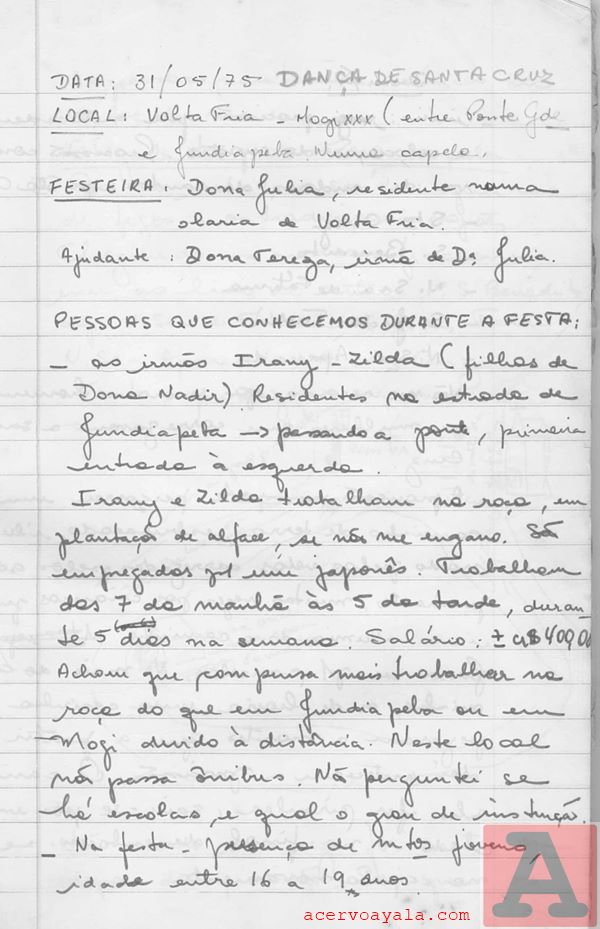 DATA: 31/05/75 DANÇA DE SANTA CRUZ
LOCAL: Volta Fria - Mogi xxx (entre Ponte Gde
e Jundiapeba. Numa capela.
FESTEIRA: Dona Julia, residente numa
olaria de Volta Fria.
Ajudante: Dona Tereza, irmã de Dª Julia.
PESSOAS QUE CONHECEMOS DURANTE A FESTA:
- as irmãs Irany - Zilda (filhas de
Dona Nadir) Residentes na estrada de
Jundiapeba → passando a ponte, primeira
entrada à esquerda.
Irany e Zilda trabalham na roça, em
plantação de alface, se não me engano. São
empregadas por um japonês. Trabalham
das 7 da manhã às 5 da tarde, duran
te 5 dias na semana. Salário: ± Cr$ 400,00
Acham que compensa mais trabalhar na
roça do que em Jundiapeba ou em
Mogi devido à distância. Neste local
não passa ônibus. Não perguntei se
há escolas, e qual o grau de instrução.
- Na festa - presença de mtos jovens,
idade entre 16 a 19 anos.
A
acervoayala.com